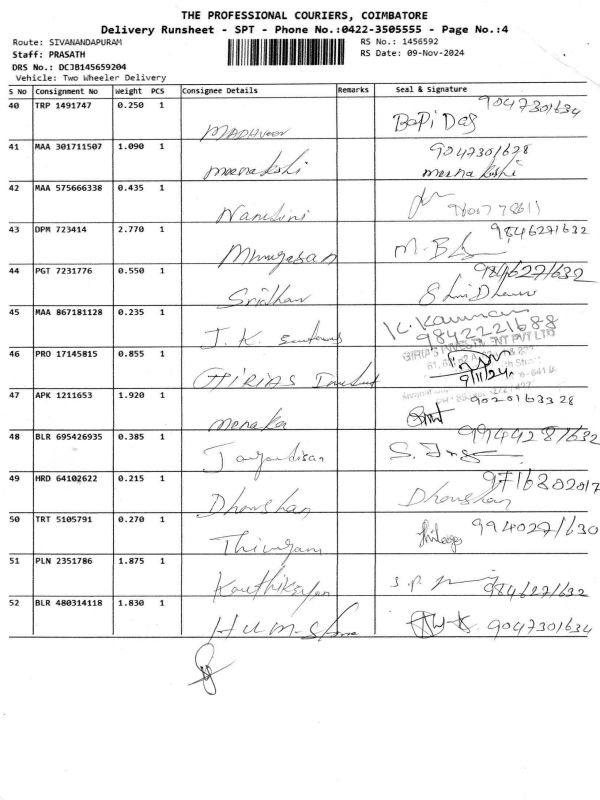 THE PROFESSIONAL COURIERS, COIMBATORE
Delivery Runsheet - SPT - Phone No.:0422-3505555 - Page No.:4
Route: SIVANANDAPURAM
RS No.: 1456592
Staff: PRASATH
RS Date: 09-Nov-2024
DRS No.: DCJB145659204
Vehicle: Two Wheeler Delivery
S No Consignment No Weight PCS Consignee Details Remarks Seal & Signature
40 TRP 1491747 0.250 1 9047301634
Bopi Das
41 MAA 301711507 1.090 1 9047301628
meenakshi meena kshi
42 MAA 575666338 0.435 1
Nandini
43 DPM 723414 2.770 1 9846271632
Murugesan
44 PGT 7231776 0.550 1 9846271632
Sridhar
45 MAA 867181128 0.235 1
J. K. 9842221688
46 PRO 17145815 0.855 1
9/11/24
47 APK 1211653 1.920 1 9020163328
menaka
48 BLR 695426935 0.385 1 9944281632
49 HRD 64102622 0.215 1 9716802017
Dhanshan Dhanshan
50 TRT 5105791 0.270 1 9940271630
51 PLN 2351786 1.875 1
9846271632
52 BLR 480314118 1.830 1
9047301634